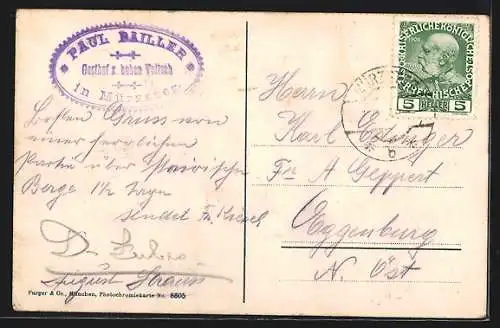 PAUL BAILLER
Gasthof z. hohen Veitsch
in Mürzsteg
KAISERLICHE KÖNIGLICHE
ÖSTERREICHISCHE
5 HELLER 5
Besten Gruss von
einer herrlichen
Partie über
Berge 1½ Tage
sendet Fr.
August Strauss
Herrn
Karl
A Geppert
Eggenburg
N. Öst
Purger & Co., München, Photochromiekarte No. 8805